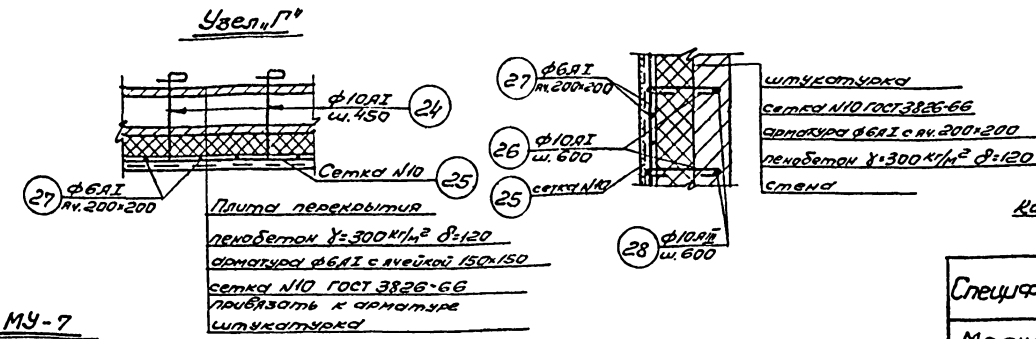 Узел „Г"
ф10АI
ш.450
24
Сетка N10
25
27
ф6АI
яч.200×200
Плита перекрытия
пенобетон γ=300 кг/м² δ=120
арматура ф6АI с ячейкой 150×150
сетка N10 ГОСТ 3826-66
привязать к арматуре
штукатурка
МУ-7
27
ф6АI
яч.200×200
26
ф10АI
ш.600
25
сетка N10
28
ф10АIII
ш.600
штукатурка
сетка N10 ГОСТ 3826-66
арматура ф6АI с яч.200×200
пенобетон γ=300 кг/м² δ=120
стена